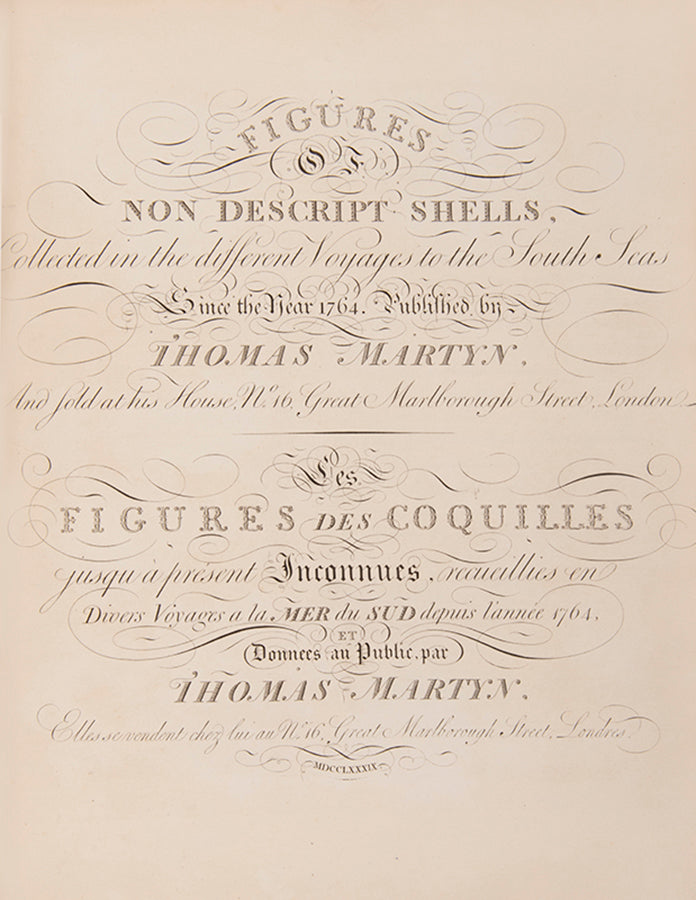 FIGURES
OF
NON DESCRIPT SHELLS,
Collected in the different Voyages to the South Seas
Since the Year 1764. Published by
THOMAS MARTYN,
And sold at his House, No. 16, Great Marlborough Street, London
Les
FIGURES DES COQUILLES
jusqu'à présent Inconnues, recueillies en
Divers Voyages a la MER du SUD depuis l'année 1764,
ET
(Donnees au Public, par)
THOMAS MARTYN,
Elles se vendent chez lui au No. 16, Great Marlborough Street, Londres.
MDCCLXXXIX.